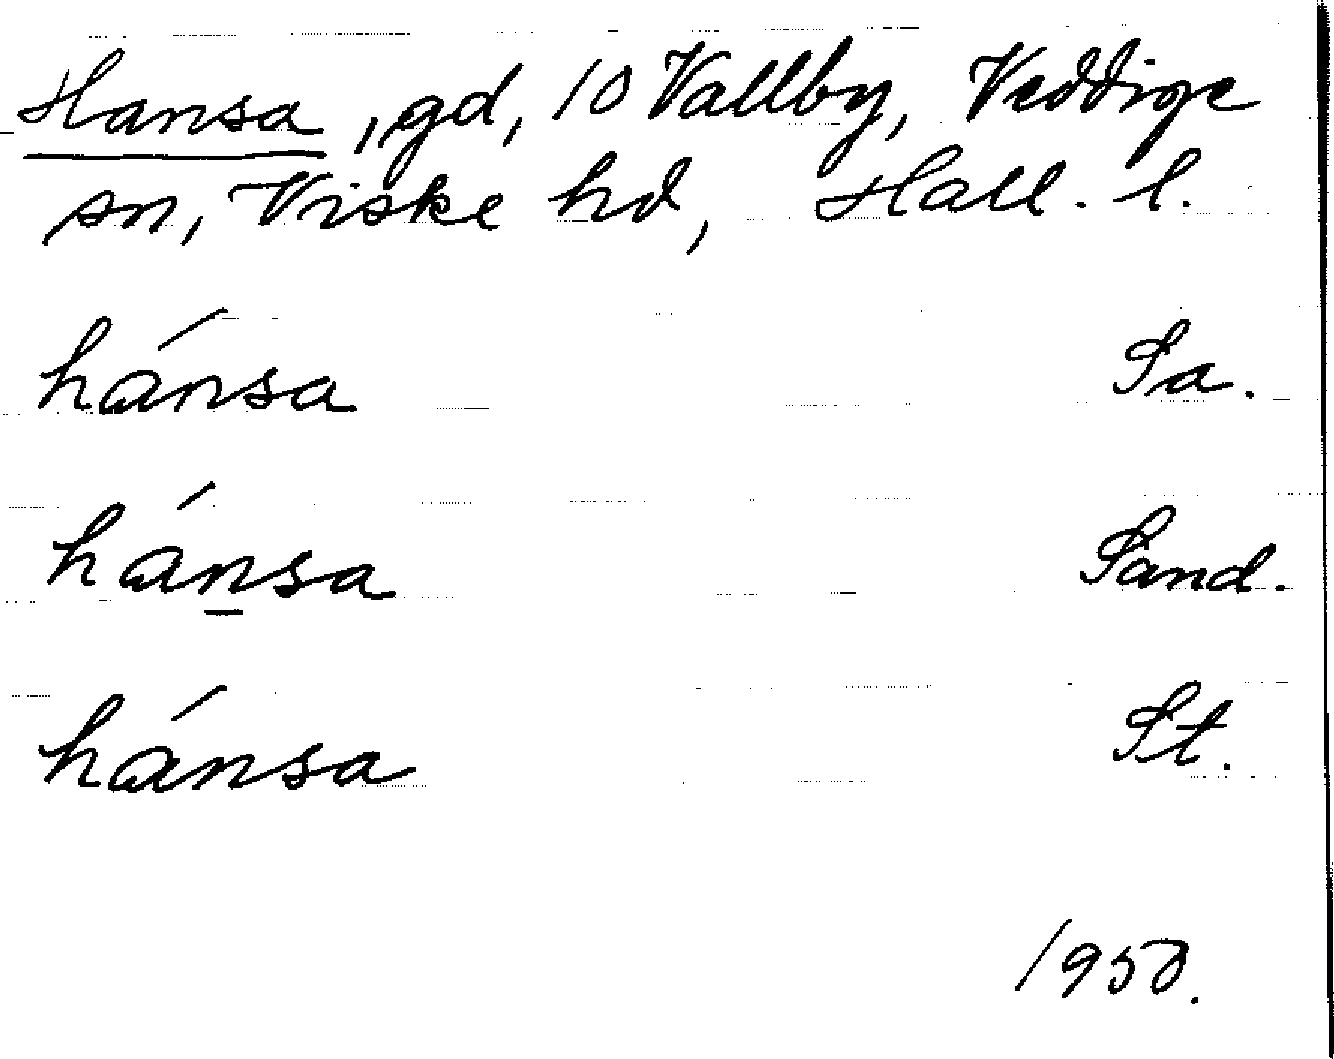 Hansa, gd, 10 Vallby, Veddige
sn, Viske hd, Hall. l.
hánsa Sa.
hánsa Sand.
hánsa St.
1950.